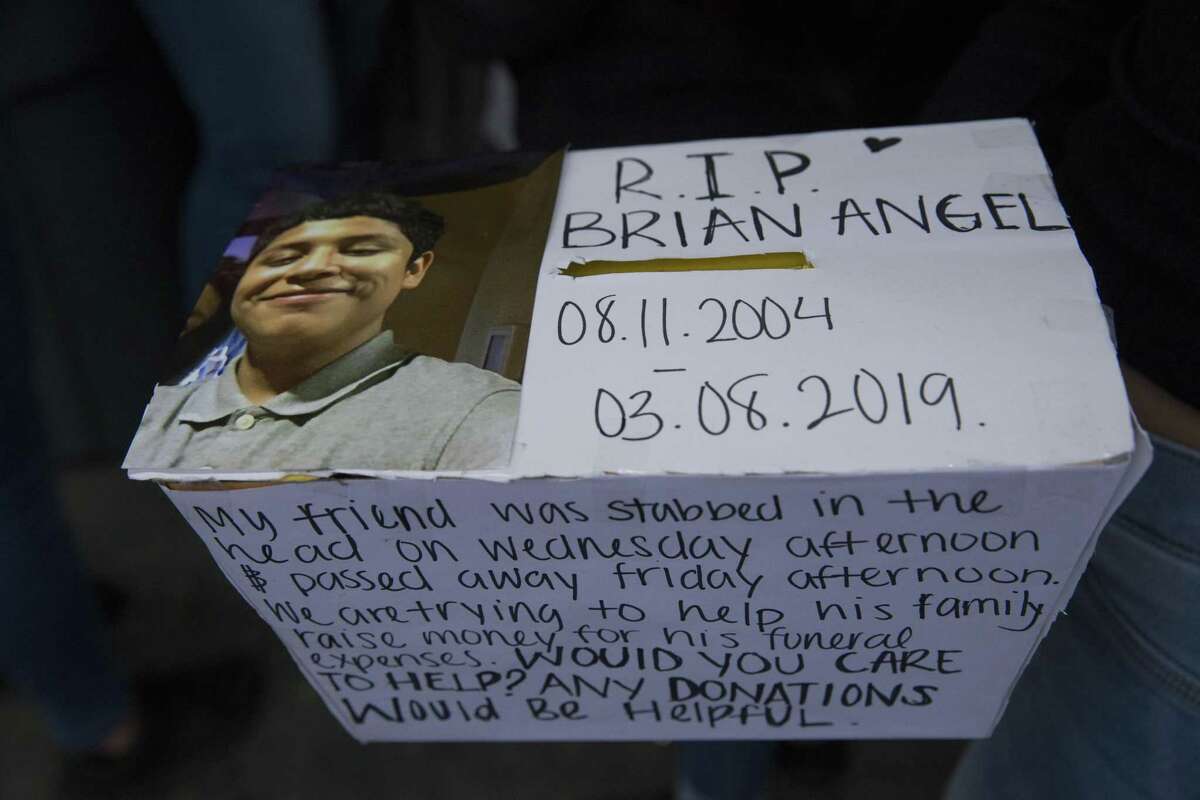 R.I.P. ♥
BRIAN ANGEL
08.11.2004
–
03.08.2019.
My friend was stabbed in the
head on Wednesday afternoon
& passed away friday afternoon.
We are trying to help his family
raise money for his funeral
expenses. WOULD YOU CARE
TO HELP? ANY DONATIONS
Would Be Helpful.